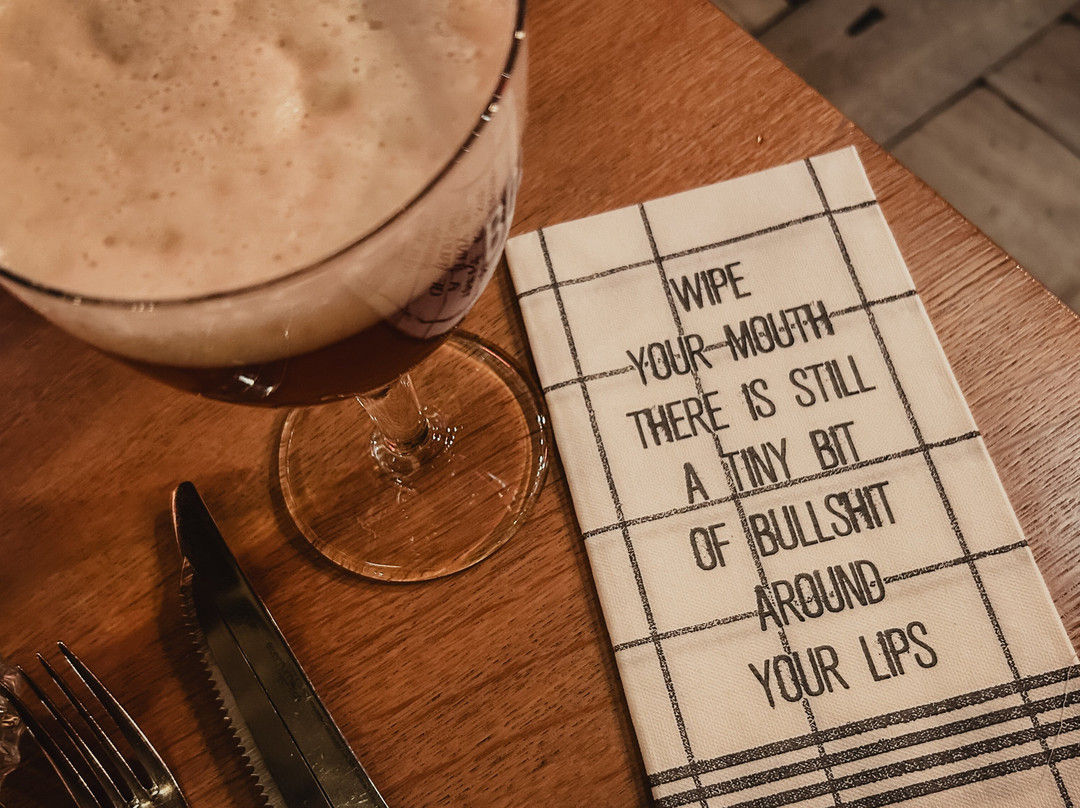 WIPE
YOUR MOUTH
THERE IS STILL
A TINY BIT
OF BULLSHIT
AROUND
YOUR LIPS